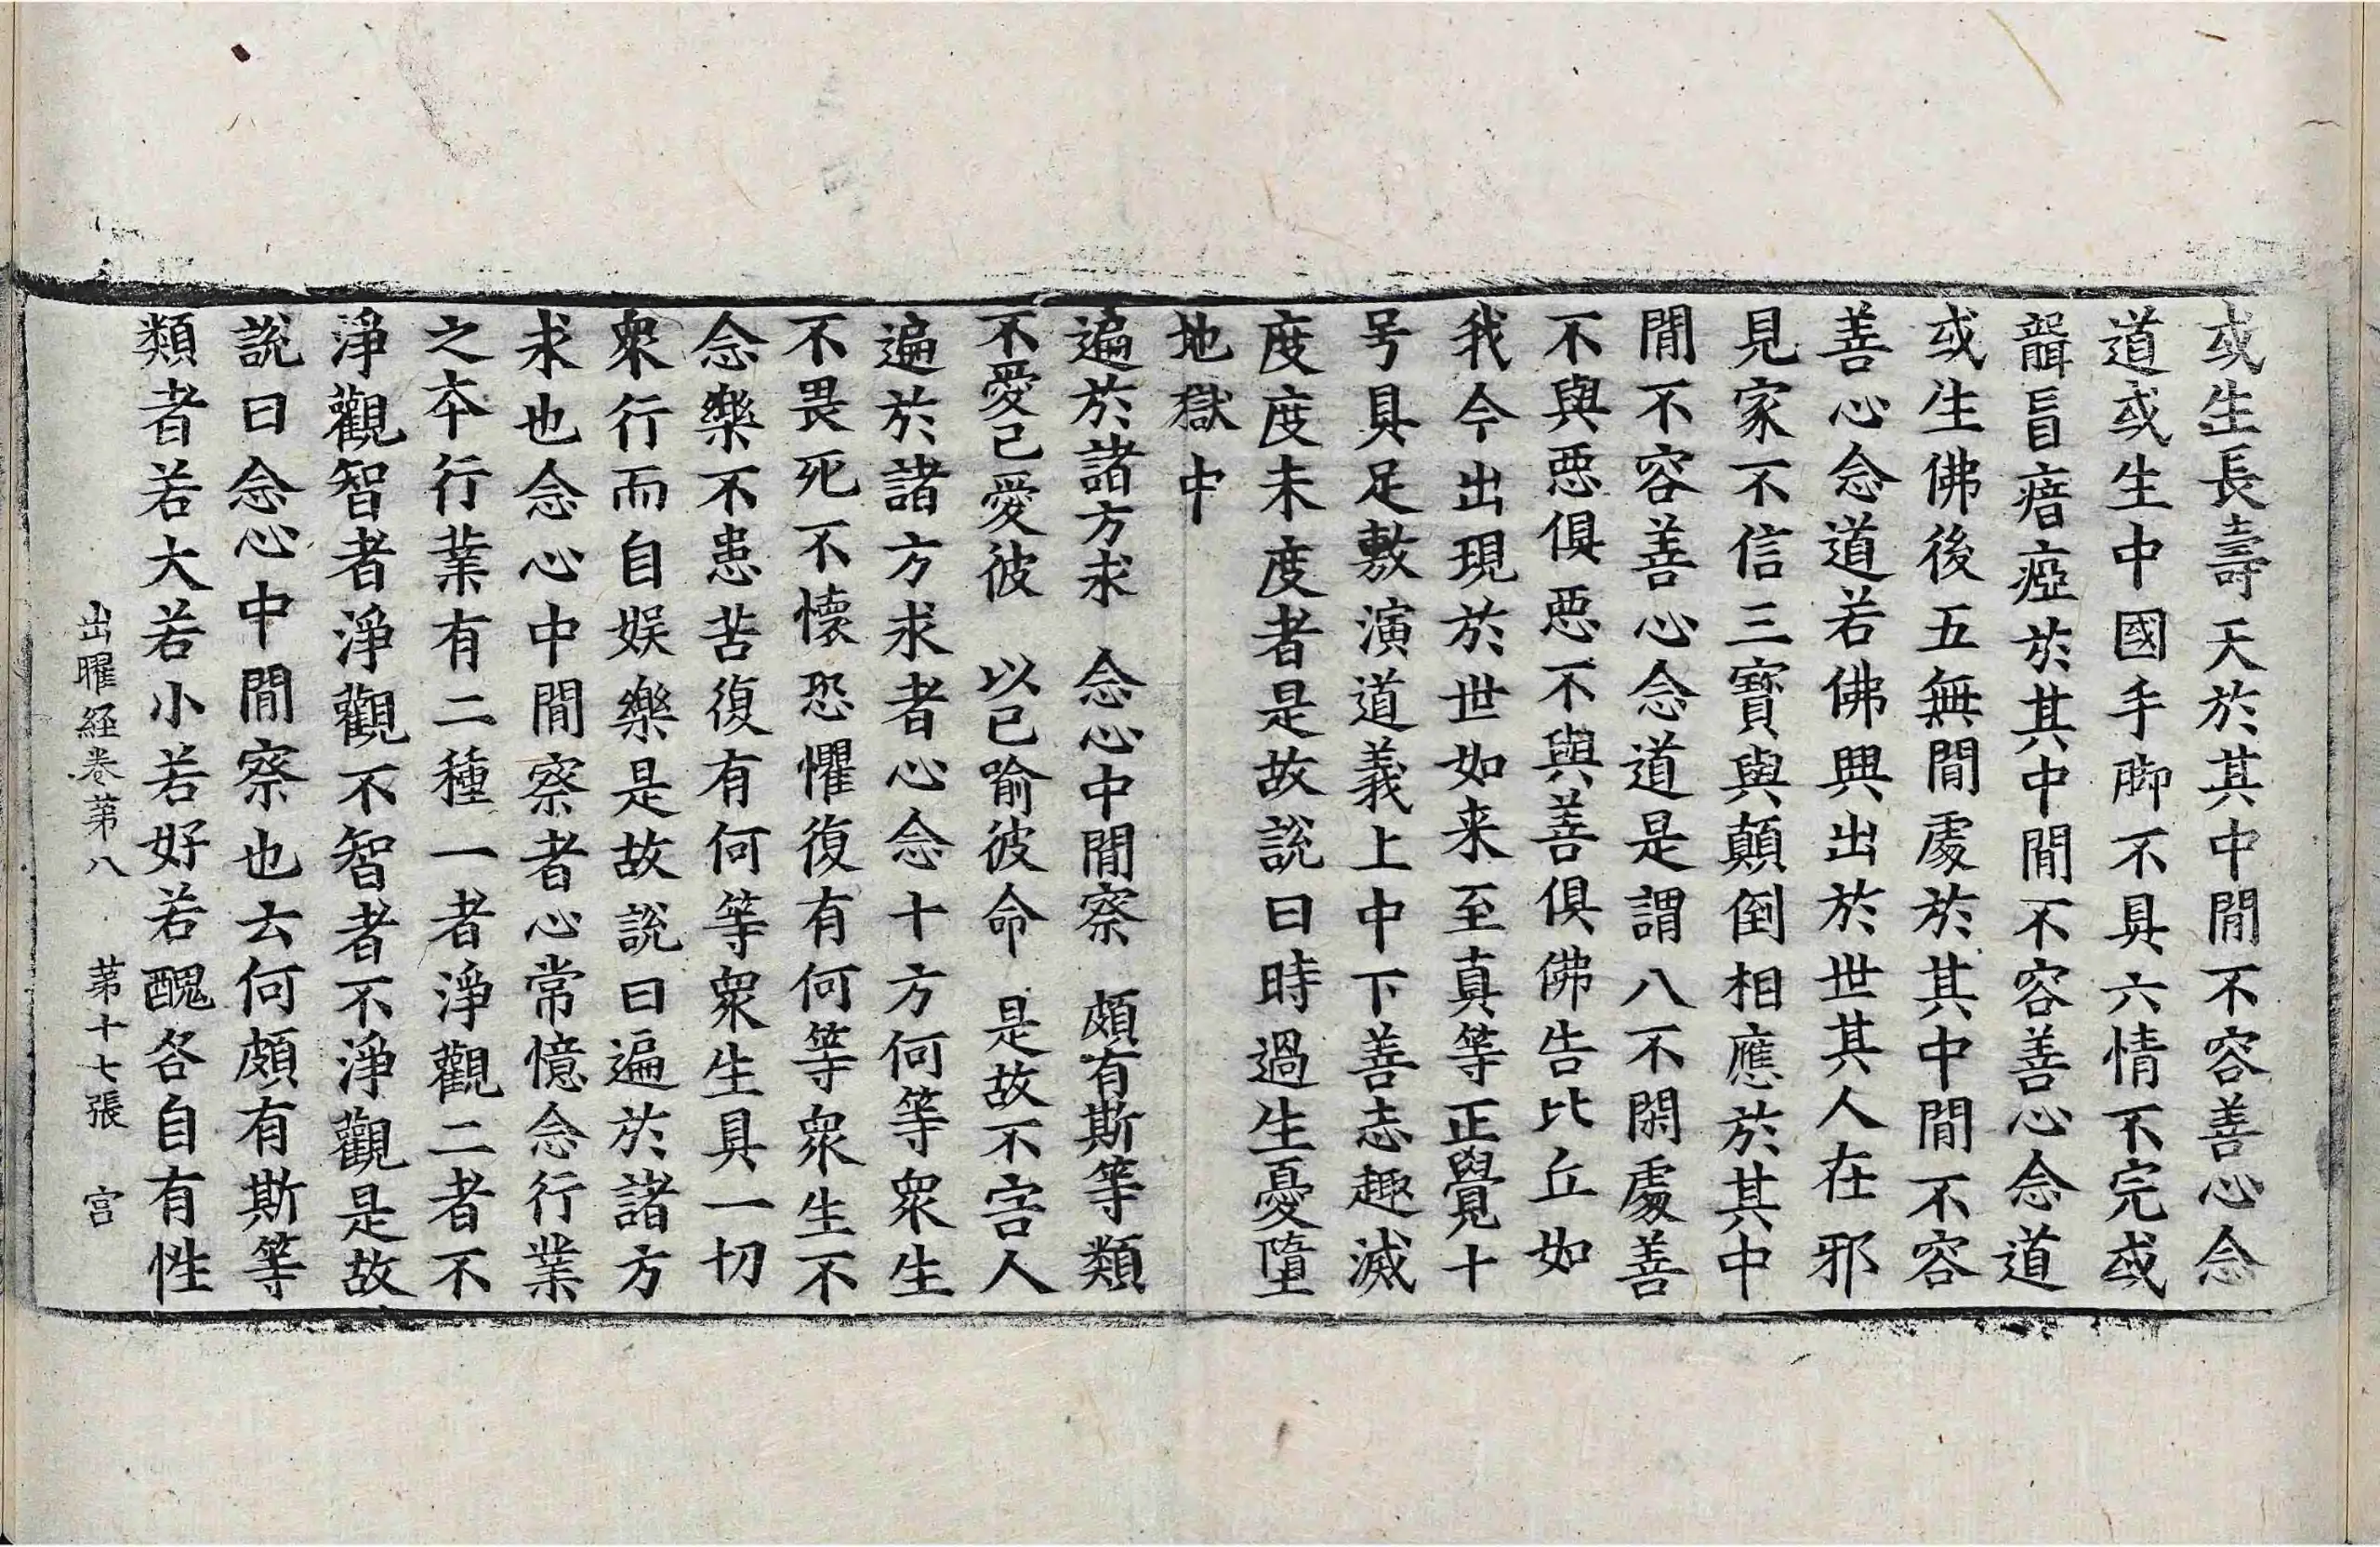 或生長壽天於其中閒不容善心念
道或生中國手脚不具六情不完或
聾盲瘖瘂於其中閒不容善心念道
或生佛後五無閒處於其中間不容
善心念道若佛興出於世其人在邪
見家不信三寳與顛倒相應於其中
閒不容善心念道是謂八不閑處善
不與惡俱惡不與善俱佛告比丘如
我今出現於世如来至真等正覺十
号具足敷演道義上中下善志趣滅
度度未度者是故說曰時過生憂墮
地獄中
遍於諸方求　念心中閒察　頗有斯等類
不愛已愛彼　以已喻彼命　是故不害人
遍於諸方求者心念十方何等衆生
不畏死不懐恐懼復有何等衆生不
念樂不患苦復有何等衆生具一切
衆行而自娛樂是故說曰遍於諸方
求也念心中閒察者心常憶念行業
之本行業有二種一者淨觀二者不
淨觀智者淨觀不智者不淨觀是故
說曰念心中閒察也去何頗有斯等
類者若大若小若好若醜各自有性
出曜経卷苐八　苐十七張　宫